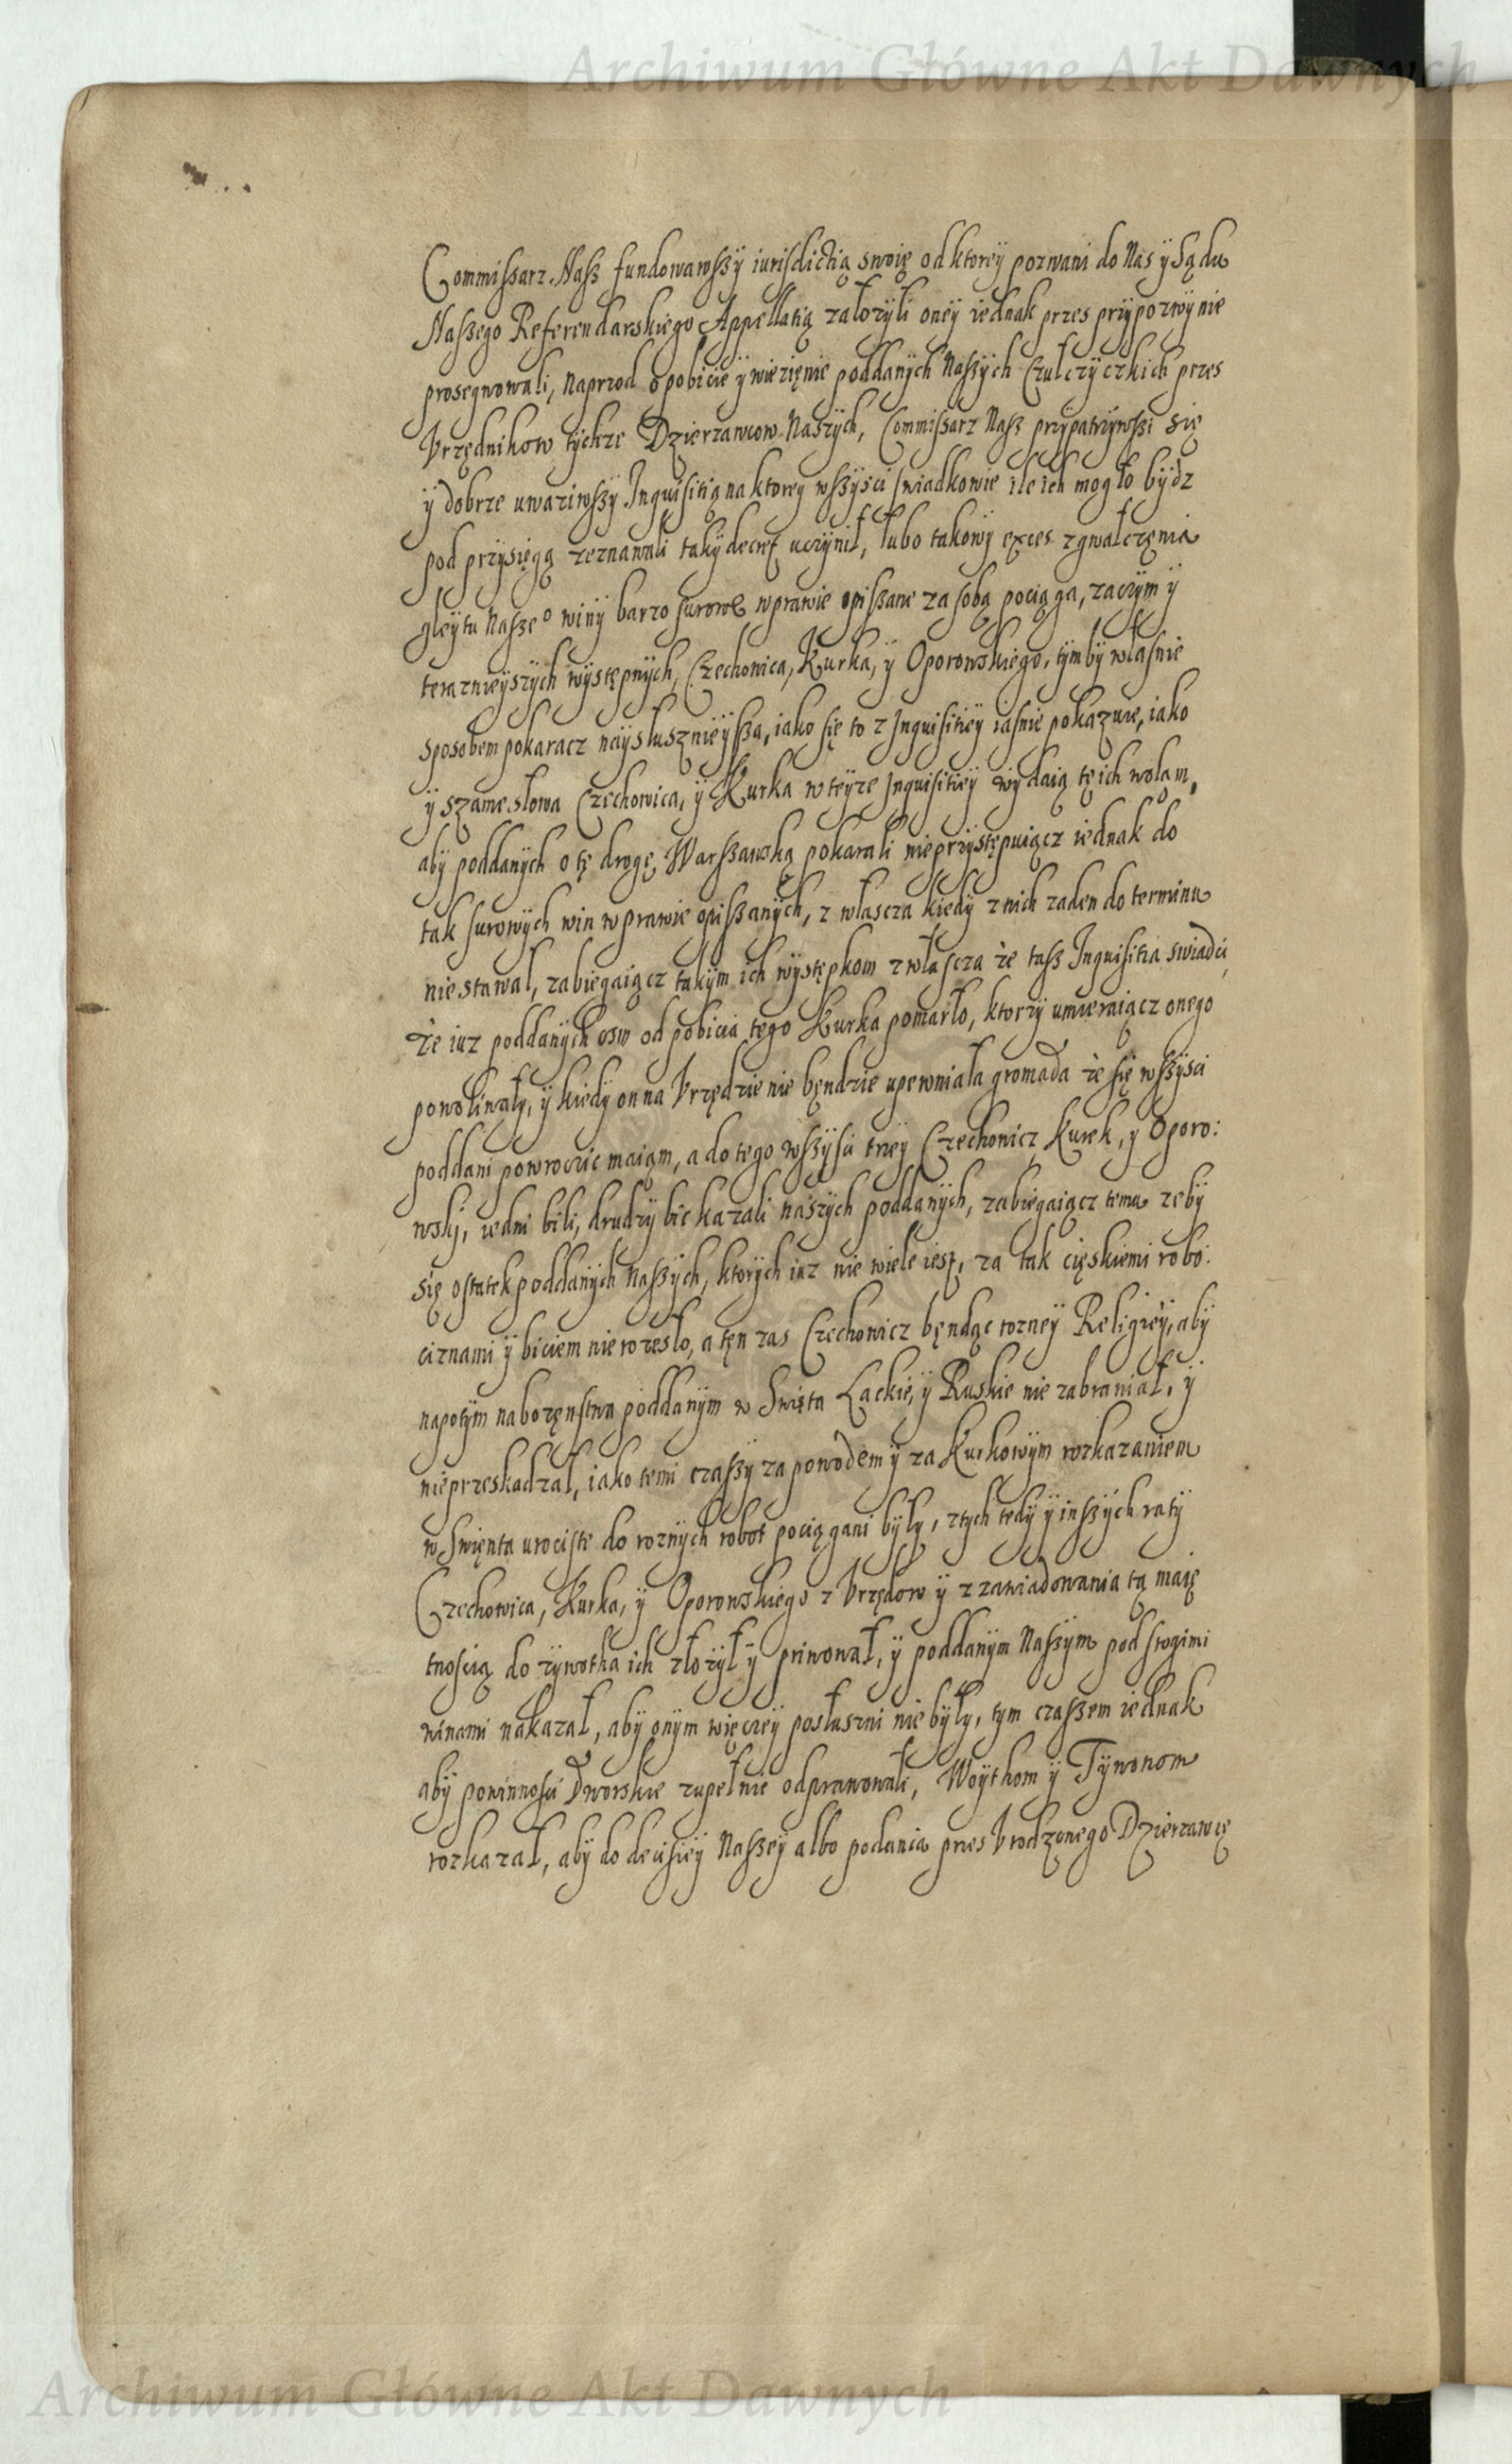 Archiwum Główne Akt Dawnych
Commissarz Nasz fundowawszÿ iurisdictią swoię od ktoreÿ pozwani do Nas ÿ Sądu
Naszego Referendarskiego Appellatią założÿli oneÿ iednak przes prÿpozwÿnie
prosequowali, naprzod o pobicie ÿ wiezięnie poddanÿch Naszÿch Czulczÿczkich przes
Vrzędnikow tÿchze Dzierzawcow Naszÿch, Commissarz Nasz prÿpatrzÿwszi się
ÿ dobrze uwaziwszÿ Inquisitią na ktoreÿ wszÿsci swiadkowie ile ich mogło bÿdz
pod przÿsięgą zeznawali takÿ decret uczÿnił, lubo takowÿ exces zgwałczęnia
gleÿtu Naszeº winÿ barzo surowe w prawie opiszane za sobą pociąga, zaczÿm ÿ
teraznieÿszÿch wÿstępnÿch, Czechowica, Kurka, ÿ Oporowskiego, tÿm bÿ własnie
sposobem pokaracz naÿsłusznieÿsza, iako się to z Inquisitieÿ iasnie pokazuie, iako
ÿ szame słowa Czechowica, ÿ Kurka w teÿze Inquisitieÿ wÿdaią tę ich wolam,
abÿ poddanÿch o tę drogę Warszawską pokarali nieprzÿstępuiącz iednak do
tak surowÿch win w prawie opiszanÿch, z włascza kiedÿ z nich zaden do terminu
nie stawał, zabiegaiącz takÿm ich wÿstępkom zwłascza że tasz Inquisitia swiadci,
że iuz poddanÿch osm od pobicia tego Kurka pomarło, ktorzÿ umieraiącz onego
powolÿwałÿ, ÿ kiedÿ on na Vrzędzie nie będzie upewniała gromada że się wszÿsci
poddani powrocic maiąm, a do tego wszÿsci trzeÿ Czechowicz, Kurek, ÿ Oporo:
wskj, iedni bili, drudzÿ bic kazali naszÿch poddanÿch, zabiegaiącz temu zebÿ
się ostatek poddanÿch Naszÿch, ktorÿch iuz nie wiele iest, za tak cięskiemi robo:
ciznami ÿ biciem nie rozesło, a tęn zas Czechowicz będąc rozneÿ Religieÿ, abÿ
napotÿm nabozęnstwa poddanÿm w Swięta Lackie, ÿ Ruskie nie zabraniał, ÿ
nieprzeskadzał, iako temi czaszÿ za powodem ÿ za Kurkowÿm rozkazaniem
w Swięnta urociste do roznÿch robot pociągani bÿłÿ, z tÿch tedÿ ÿ inszÿch ratÿ
Czechowica, Kurka, ÿ Oporowskiego z Vrzędow ÿ z zawiadowania tą maię
tnoscią do zÿwotha ich złozÿł ÿ priwował, ÿ poddanÿm Naszÿm pod srogimi
winami nakazał, abÿ onÿm więczeÿ posłuszni nie bÿłÿ, tÿm czaszem iednak
abÿ powinnosci Dworskie zupełnie odprawowali, Woÿthom ÿ Tÿwonom
rozkazał, abÿ do decisieÿ Naszeÿ albo podania przes Vrodzonego Dzierzawcę
Archiwum Główne Akt Dawnych